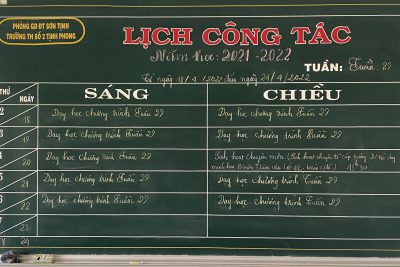 PHÒNG GD-ĐT SƠN TỊNH
TRƯỜNG TH SỐ 2 TỊNH PHONG
LỊCH CÔNG TÁC
Năm học: 2021-2022
TUẦN: Tuần 29
Từ ngày 18/4/2022 đến ngày 24/4/2022
THỨ NGÀY SÁNG CHIỀU
2 18 Dạy học chương trình Tuần 29 Dạy học chương trình Tuần 29
3 19 Dạy học chương trình Tuần 29 Dạy học chương trình Tuần 29
4 20 Dạy học chương trình Tuần 29 Sinh hoạt chuyên môn (Sinh hoạt chuyên đề cấp trường:
5 21 Dạy học chương trình Tuần 29 Dạy học chương trình Tuần 29
6 22 Dạy học chương trình Tuần 29 Dạy học chương trình Tuần 29
7 23
24